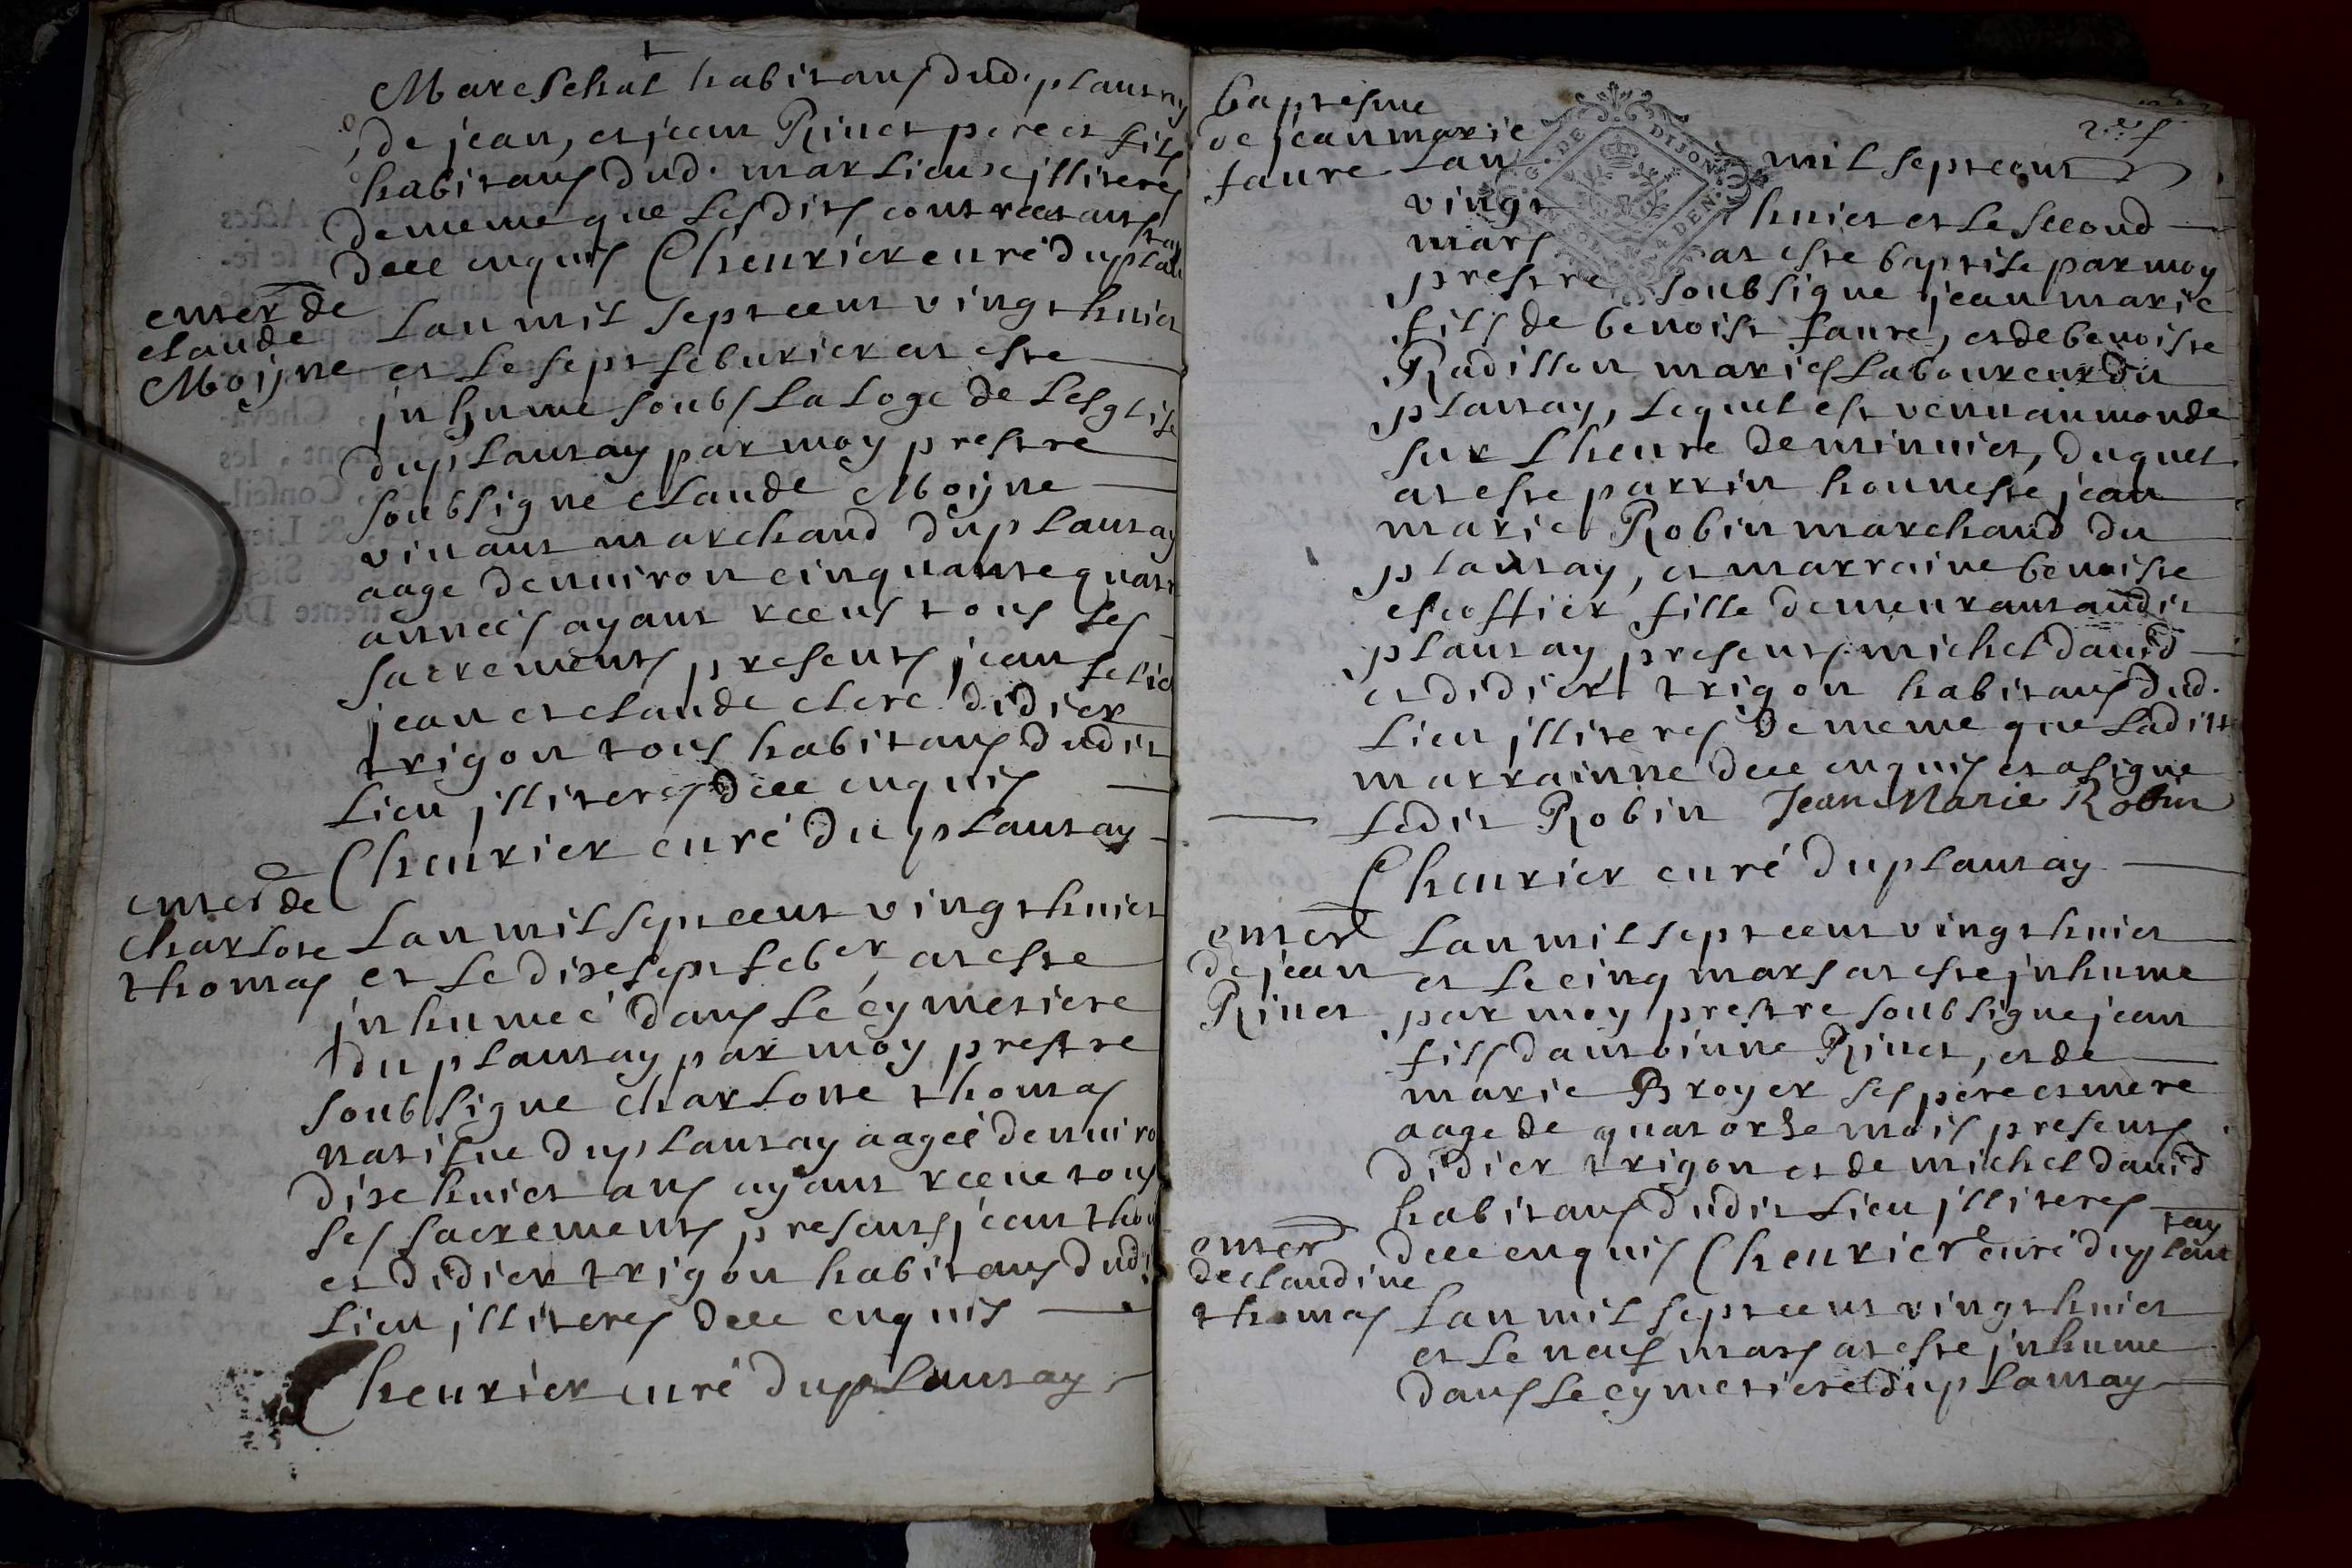 Mareschal habitans dud. plantay
de jean, et jean Rivet pere et fils
habitans dud. marlieuxe illiteres
dememe que lesdits contractans
dece enquis Chevrier curé du plan
tay
enter de
claude
Moijne
Lan mil sept cent vingt huict
et le sept feburier at este
inhume soubs la loge de lesglise
du plantay par moy prestre
soubsigné claude Moijne
vivant marchand du plantay
aage denviron cinquante quatr
anneés ayant receus tous les
sacrements presents jean felix
jean et claude clerc didier
trigon tous habitans dudit
lieu illiteres dece enquis
Chevrier curé du plantay
enter de
charlote
thomas
Lan mil sept cent vingt huict
et le dixesept feber at este
inhumeé dans le cymetiere
du plantay par moy prestre
soubsigne charlotte thomas
natifve du plantay aageé denviro
dixe huict ans ayant receue tous
les sacrements presents jean thom
et didier trigon habitans dudi
lieu illiteres dece enquis
Chevrier curé du plantay
baptesme
de jean marie
faure
G. DE DIJON
4 DEN.
Lan mil sept cent
vingt huict et le second
mars at este baptise par moy
prestre soubsigne jean marie
fils de benoist faure, et de benoiste
Radillon maries laboureur du
plantay, lequel est venu au monde
sur lheure de minuict, duquel
at este parrin honneste jean
marie Robin marchand du
plantay, et marraine benoiste
escoffier fille demeurant audit
plantay presents michel david
et didier trigon habitans dud.
lieu illiteres de meme que ladite
marrainne dece enquis et a signe
ledit Robin Jean Marie Robin
Chevrier curé du plantay
enter
de jean
Rivet
Lan mil sept cent vingt huict
et le cinq mars at este inhume
par moy prestre soubsigne jean
fils dantoinne Rivet, et de
marie Broyer ses pere et mere
aage de quatorze mois presents
didier trigon et de michel david
habitans dudit lieu illiteres
dece enquis Chevrier curé du plan
tay
enter
de claudine
thomas
Lan mil sept cent vingt huict
et le neuf mars at este inhume
dans le cymetiere du plantay